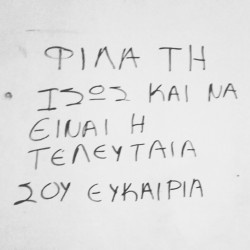 ΦΙΛΑ ΤΗ
ΙΣΩΣ ΚΑΙ ΝΑ
ΕΙΝΑΙ Η
ΤΕΛΕΥΤΑΙΑ
ΣΟΥ ΕΥΚΑΙΡΙΑ